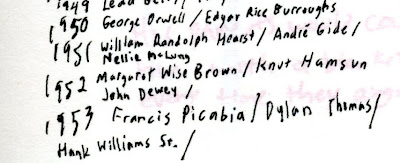 1949 Lead
1950 George Orwell / Edgar Rice Burroughs
1951 William Randolph Hearst / André Gide /
Nellie McLung
1952 Margaret Wise Brown / Knut Hamsun
John Dewey /
1953 Francis Picabia / Dylan Thomas /
Hank Williams Sr. /